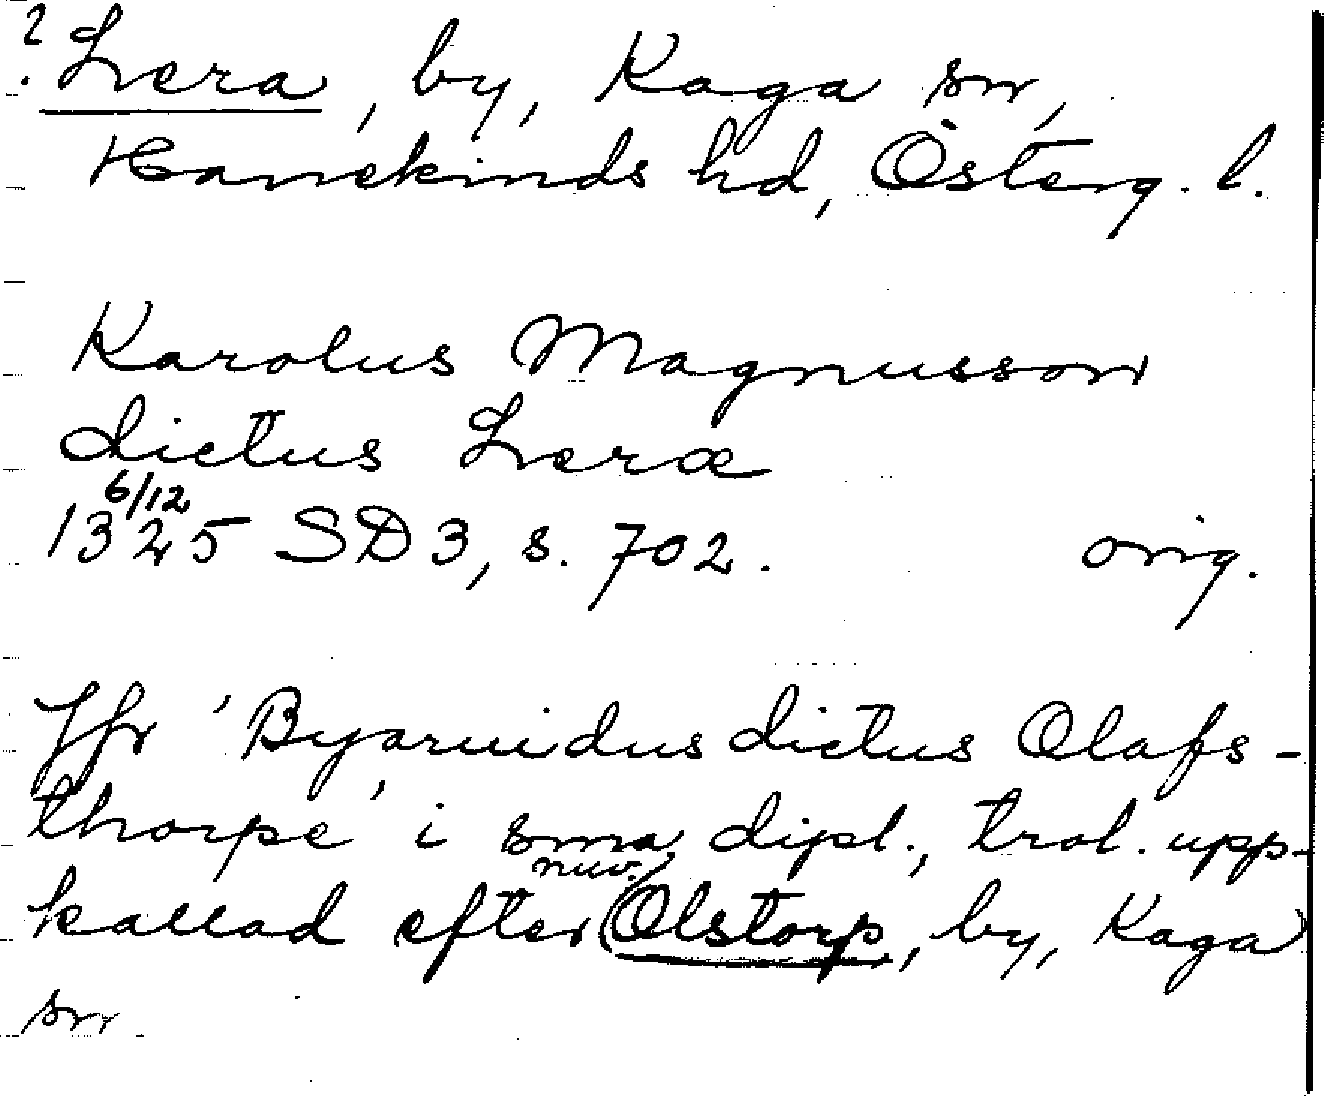 ? Lera, by, Kaga sn,
Hanekinds hd, Österg. l.
Karolus Magnusson
dictus Leræ
6/12
1325 SD 3, s. 702. orig.
Jfr 'Byaruidus dictus Olafs-
thorpe' i sma dipl., trol. upp-
nuv.
kallad efter Olstorp, by, Kaga
sn